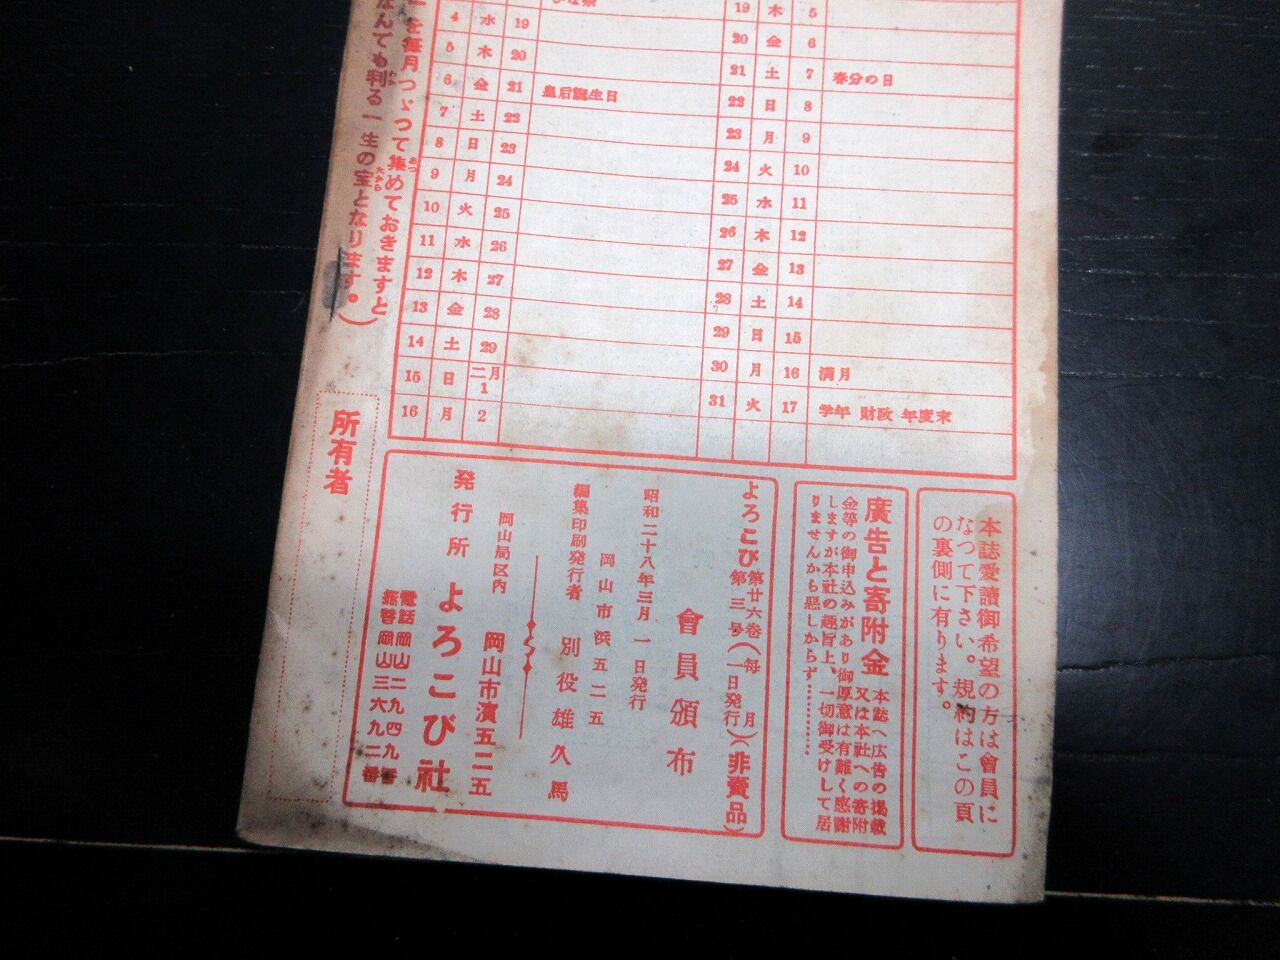 4 水 19
5 木 20
6 金 21 皇后誕生日
7 土 22
8 日 23
9 月 24
10 火 25
11 水 26
12 木 27
13 金 28
14 土 29
15 日 二月1
16 月 2
19 木 5
20 金 6
21 土 7 春分の日
22 日 8
23 月 9
24 火 10
25 水 11
26 木 12
27 金 13
28 土 14
29 日 15
30 月 16 満月
31 火 17 学年 財政 年度末
を毎月つゞつて集めておきますと
なんでも判る一生の宝となります。)
所有者
本誌愛讀御希望の方は會員に
なつて下さい。規約はこの頁
の裏側に有ります。
廣告と寄附金
本誌へ広告の掲載
又は本社への寄附
金等の御申込みがあり御厚意は有難く感謝
しますが本社の趣旨上、一切御受けして居
りませんから惡しからず…………
よろこび 第廿六卷 第三号 (毎月一日発行) (非賣品)
會員頒布
昭和二十八年三月一日発行
岡山市浜五二五
編集印刷発行者 別役雄久馬
岡山局区内 岡山市濱五二五
発行所 よろこび社
電話岡山二九四九番
振替岡山三六九二番